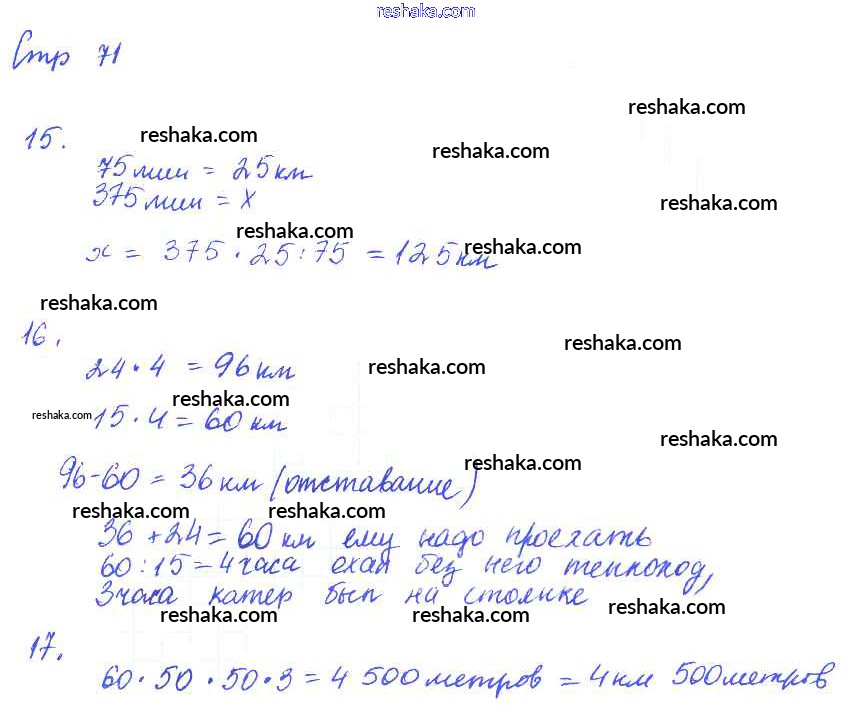 reshaka.com
Стр 71
reshaka.com
15. reshaka.com
reshaka.com
75 мин = 25 км
375 мин = х
reshaka.com
reshaka.com
х = 375 · 25 : 75 = 125 км
reshaka.com
reshaka.com
16.
reshaka.com
24 · 4 = 96 км
reshaka.com
reshaka.com
reshaka.com
15 · 4 = 60 км
reshaka.com
96 - 60 = 36 км (отставание)
reshaka.com
reshaka.com
reshaka.com
36 + 24 = 60 км ему надо проехать
60 : 15 = 4 часа ехал без него теплоход,
3 часа катер был на стоянке
reshaka.com
reshaka.com
reshaka.com
17.
60 · 50 · 50 · 3 = 4 500 метров = 4 км 500 метров